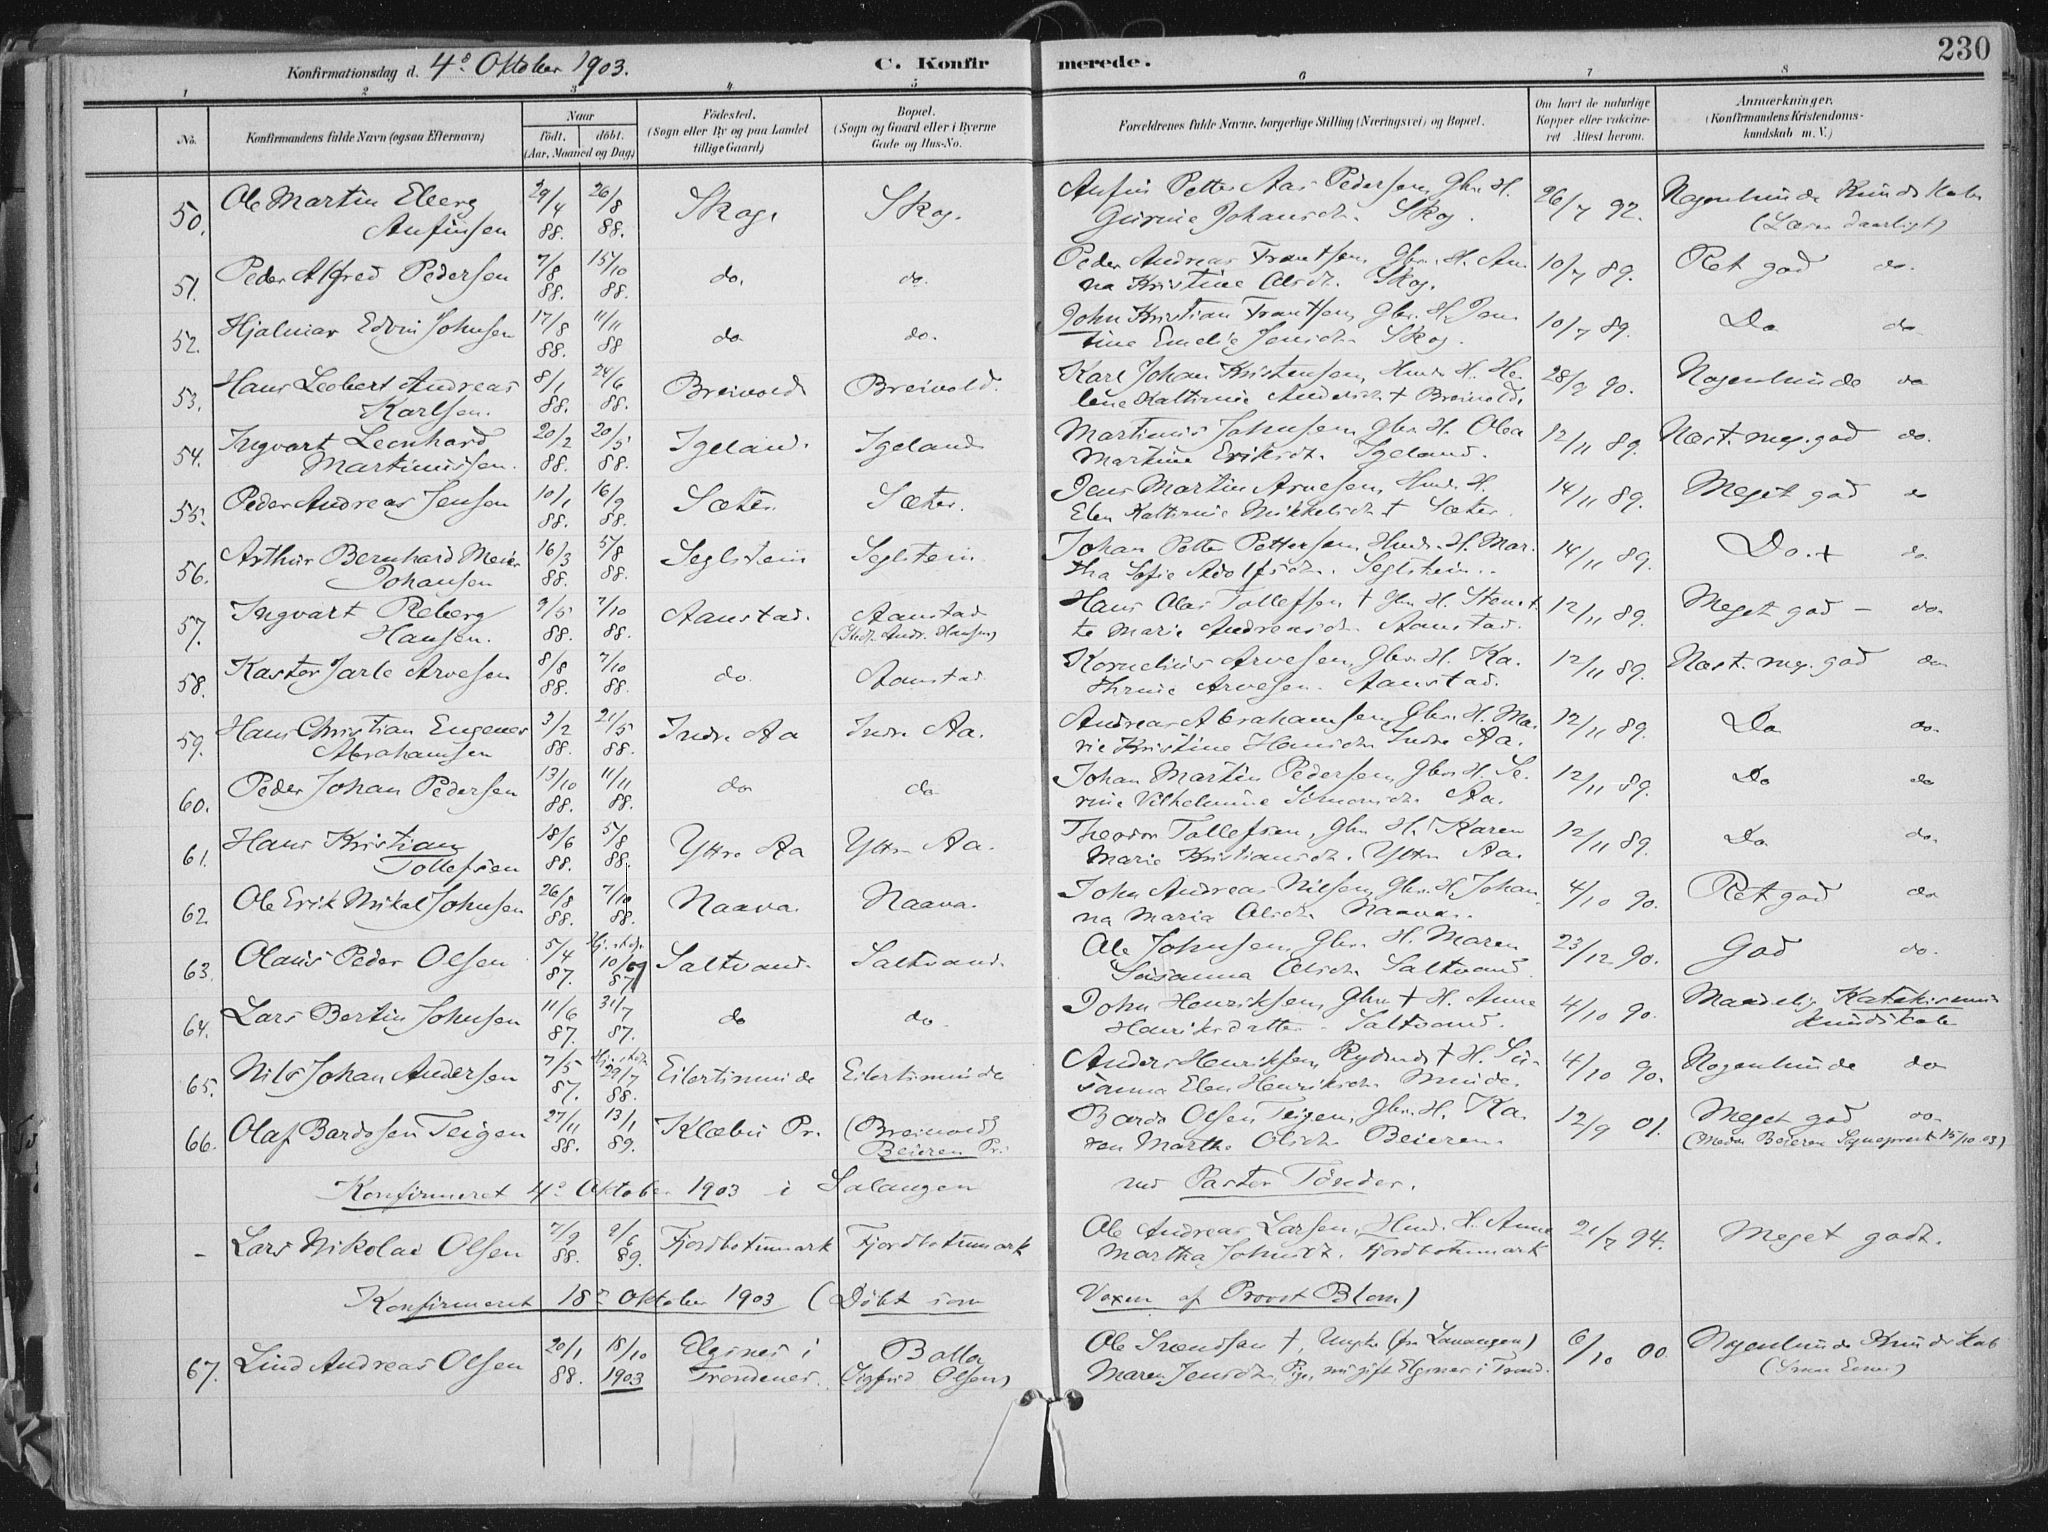 230
Konfirmationsdag d. 4de Oktober 1903. C. Konfirmerede.
1 2 3 4 5 6 7 8
No. Konfirmandens fulde Navn (ogsaa Efternavn) Naar födt. döbt. (Aar, Maaned og Dag) Födested. (Sogn eller By og paa Landet tillige Gaard) Bopæl. (Sogn og Gaard eller i Byerne Gade og Hus-No. Forældrenes fulde Navne, borgerlige Stilling (Næringsvei) og Bopæl. Om havt de naturlige Kopper eller vakcineret Attest herom. Anmærkninger. (Konfirmandens Kristendomskundskab m. V.)
50. Ole Martin Eberg 29/4 26/8 Skog. Skog. Anfin Petter Aas Pedersen, Gbr. H. 26/7 92. Nogenlunde Kundskab
Anfinsen 88. 88. Johansdtr. Skog. (Læser daarligt)
51. Peder Alfred Pedersen 7/8 15/10 do. do. Peder Andreas Frantsen, Gbr. H. An- 10/7 89. Ret god do.
88. 88. na Kristine Olsdtr. Skog.
52. Hjalmar Edvin Johnsen 17/8 11/11 do do. John Kristian Frantsen, Gbr. H. Jen- 10/7 89. Do do
88. 88 tine Emelie Jensdtr. Skog.
53. Hans Leobert Andreas 8/1 24/6 Breivold Breivold. Karl Johan Kristensen, Hmd. H. He- 28/9 90. Nogenlunde do
Karlsen. 88. 88. lene Kathrine Andersdtr. + Breivold.
54. Ingvart Leonhard 20/2 20/5 Igeland. Igeland Martinus Johnsen, Gbr. H. Olea 12/11 89. Næst. meg. god do.
Martinussen. 88. 88. Martine Eriksdtr. Igeland.
55. Peder Andreas Jensen 10/1 16/9 Sæter. Sæter. Jens Martin Arnesen, Hmd. H. 14/11 89. Meget god do
88. 88. Elen Kathrine Mikkelsdtr. + Sæter.
56. Arthur Bernhard Meier 16/3 5/8 Seglstein Seglstein. Johan Petter Pettersen, Hmd. H. Mar- 14/11 89. Do. + do
Johansen 88. 88. tha Sofie Adolfsdtr. Seglstein.
57. Ingvart Reberg 9/5 7/10 Aanstad. Aanstad Hans Olai Tollefsen + Gbr. H. 12/11 89. Meget god - do.
Hansen. 88. 88. (Andr. Hansen) te Marie Andreasdtr. Aanstad.
58. Kastor Jarle Arvesen 8/8 7/10 do. Aanstad Kornelius Arvesen, Gbr. H. Ka- 12/11 89. Næst. meg. god do
88. 88. thrine Arvesen. Aanstad.
59. Hans Christian Eugenes 3/2 21/5 Indre Aa Indre Aa. Andreas Abrahamsen, Gbr. H. Ma- 12/11 89. Do do.
Abrahamsen 88. 88. rie Kristine Hansdtr. Indre Aa.
60. Peder Johan Pedersen 13/10 11/11 do do Johan Martin Pedersen, Gbr. H. Se- 12/11 89. Do do
88. 88. rine Vilhelmine Simonsdtr. Aa.
61. Hans Kristian 18/6 5/8 Yttre Aa Yttre Aa. Theodor Tollefsen, Gbr. H. Karen 12/11 89. Do do.
Tollefsen 88. 88. Marie Kristiansdtr. Yttre Aa.
62 Ole Erik Mikal Johnsen 26/8 7/10 Naava. Naava. John Andreas Nilsen, Gbr. H. Johan- 4/10 90. Ret god do
88. 88. na Maria Olsdtr. Naava.
63. Olaus Peder Olsen 5/4 Hj. døbt 10/ Saltvand. Saltvand. Ole Johnsen, Gbr. H. Maren 23/12 90. God do.
87. 87 Susanna Olsdtr. Saltvand.
64. Lars Bertin Johnsen 11/6 31/7 do do. John Henriksen, Gbr. + H. Anne 4/10 90. Maadelig Katekismus
87. 87. Henriksdatter. Saltvand. kundskab
65. Nils Johan Andersen 7/5 Hj. døbt 29/7 Eilertsmunde Eilertsmunde Anders Henriksen, Rydmd. + H. Su- 4/10 90. Nogenlunde do
87. 88. sanna Elen Henriksdtr. Munde.
66. Olaf Bardosen Teigen 27/11 13/1 Klæbu Pr. (Breivold) Bardo Olsen Teigen, Gbr. H. Ka- 12/9 01. Meget god do.
88. 89. Beieren Pr. ren Martha Olsdtr. Beieren. (Medd. Beieren Sogneprest 15/10 03)
Konfirmeret 4de Oktober 1903 i Salangen ved Pastor Tönder.
- Lars Nikolai Olsen 7/9 9/6 Fjordbotnmark Fjordbotnmark Ole Andreas Larsen, Hmd. H. Anne 21/7 94. Meget godt.
88. 89. Martha Johnsdt. Fjordbotnmark
Konfirmeret 18de Oktober 1903 (Döbt som Voxen af Provst Blom)
67. Lind Andreas Olsen 20/1 18/10 Elgsnes i Bolla Ole Svendsen +, Ungk. (fra Lavangen) 6/10 00. Nogenlunde Kundskab
88. 1903 Trondenes. (Sigfrid Olsen) Maren Jensdtr. Pige, nu gift Elgsnes i Trond.